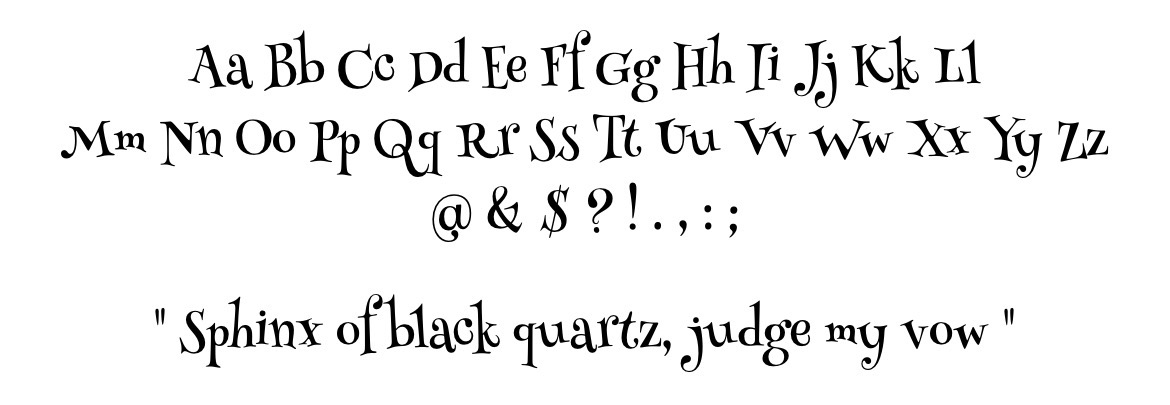 Aa Bb Cc Dd Ee Ff Gg Hh Ii Jj Kk Ll
Mm Nn Oo Pp Qq Rr Ss Tt Uu Vv Ww Xx Yy Zz
@ & $ ? ! . , : ;
" Sphinx of black quartz, judge my vow "